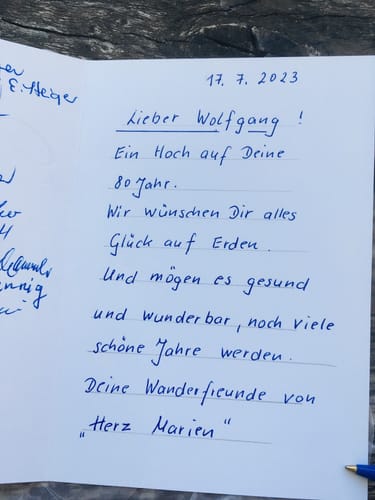 E. Heiger
17. 7. 2023
Lieber Wolfgang !
Ein Hoch auf Deine
80 Jahr.
Wir wünschen Dir alles
Glück auf Erden.
Und mögen es gesund
und wunderbar, noch viele
schöne Jahre werden.
Deine Wanderfreunde von
„Herz Marien"